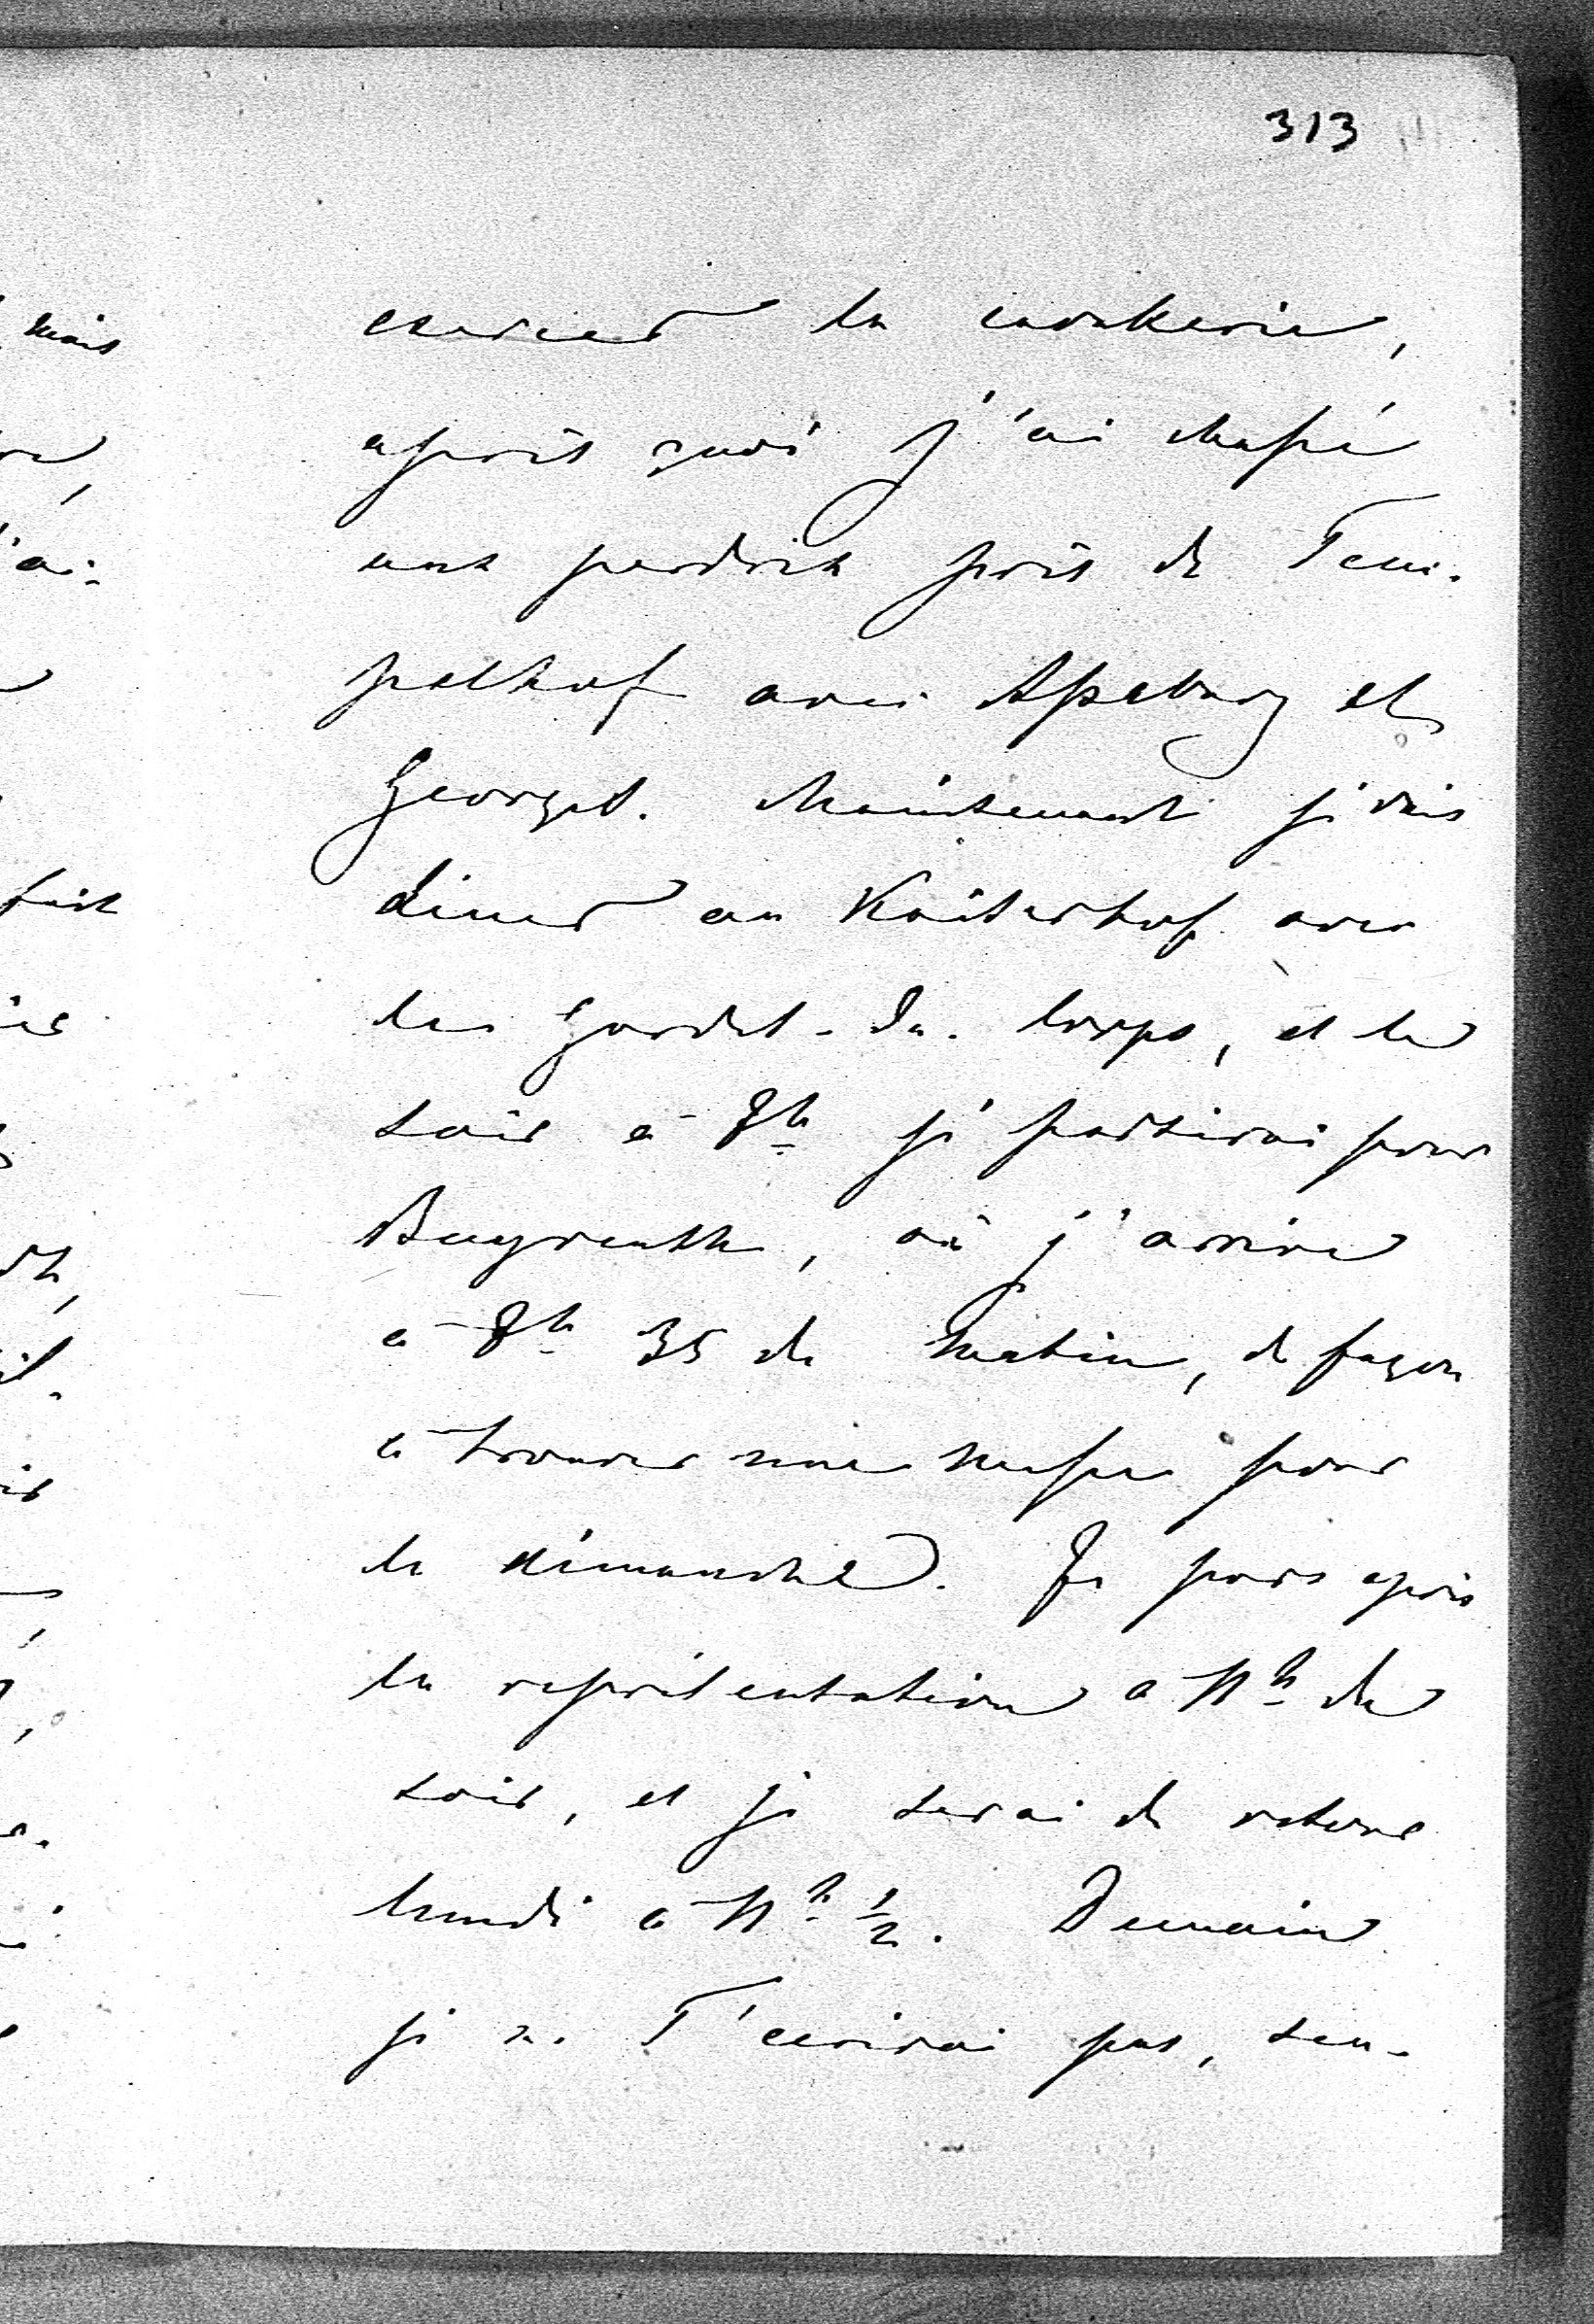 313
exercer la cavalerie,
après quoi j'ai chassé
une perdrix près de Tem-
pelhof avec Asseburg et
Georges. Maintenant je vais
diner au Kaiserhof avec
les Gardes-du-Corps, et le
soir à 8h je partirai pour
Bayreuth, où j'arrive
à 8h 35 du matin, de façon
à trouver une messe pour
le dimanche. Je pars après
la représentation à 11h du
soir, et je serai de retour
lundi à 11h ½. Demain
je ne T'écrirai pas, seu-
mais
fait